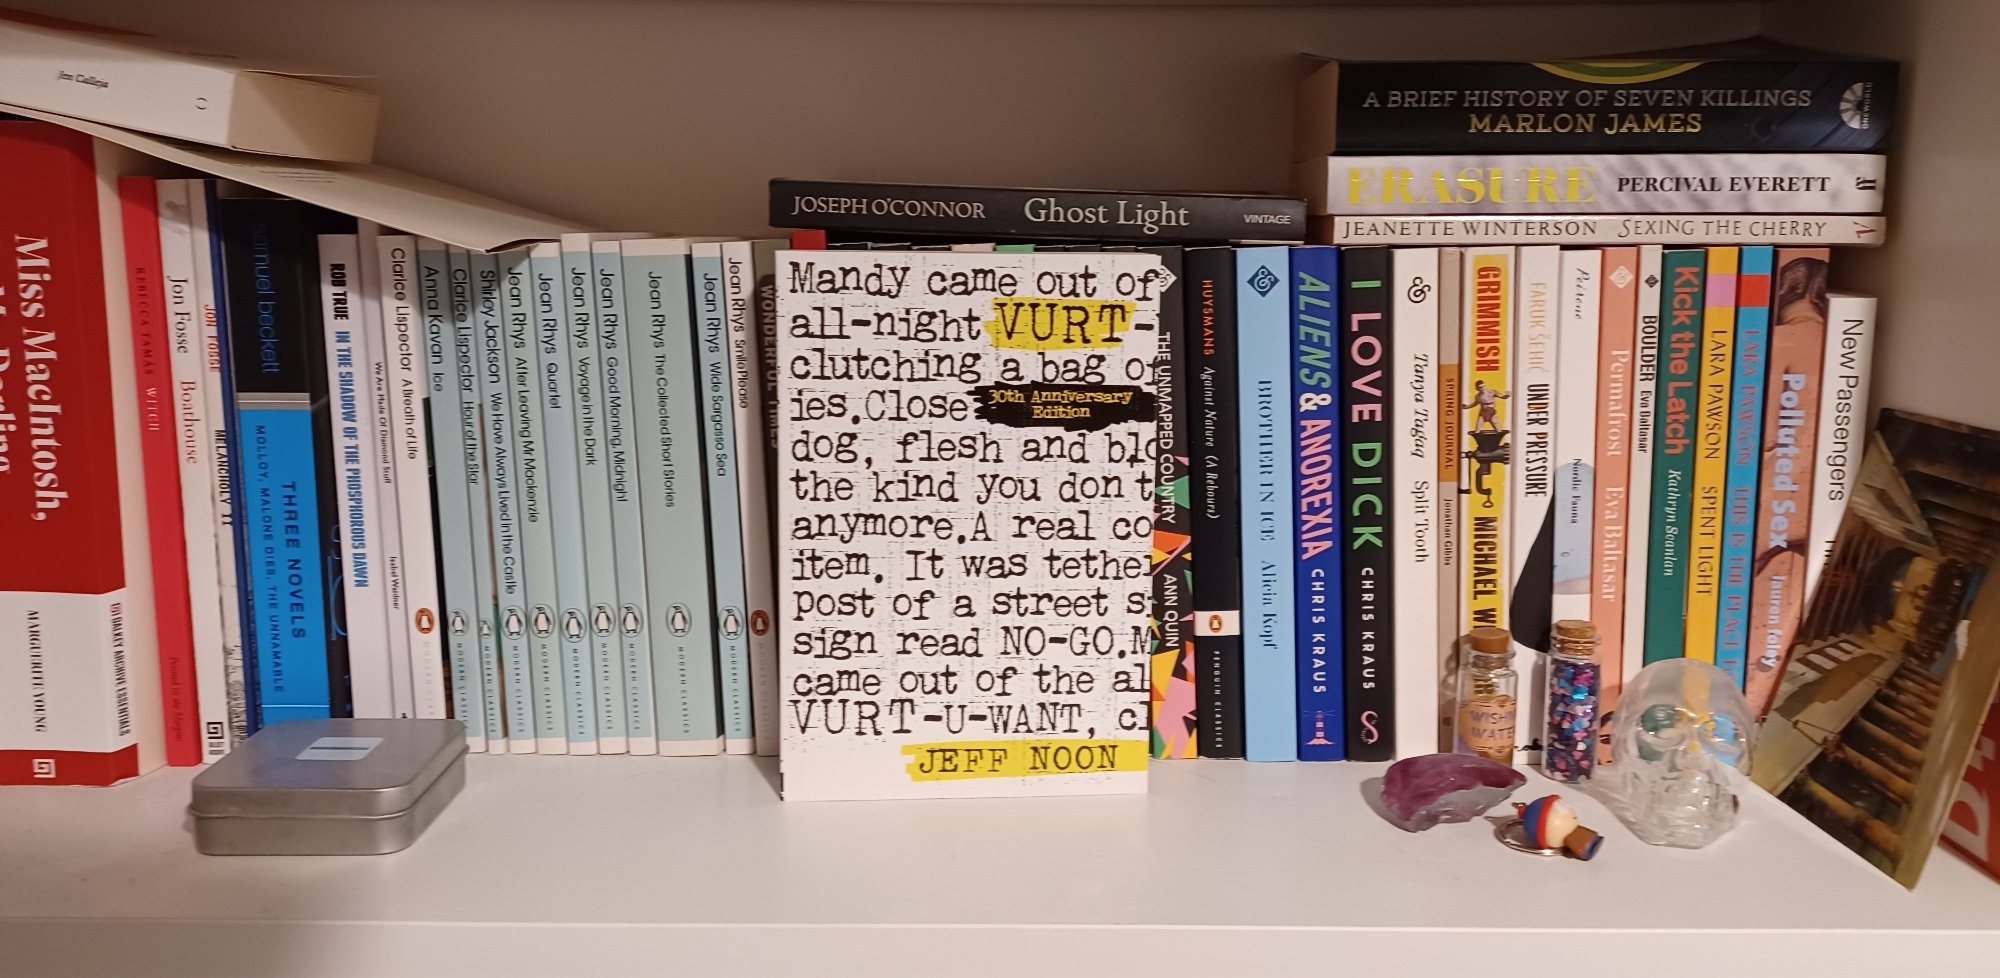 Jen Calleja
Miss MacIntosh,
My Darling
MARGUERITE YOUNG
DALKEY ARCHIVE ESSENTIALS
REBECCA TAMÁS WITCH
Jon Fosse Boathouse
JON FOSSE
MELANCHOLY II
samuel beckett
THREE NOVELS
MOLLOY, MALONE DIES, THE UNNAMABLE
ROB TRUE IN THE SHADOW OF THE PHOSPHOROUS DAWN
We Are Made Of Diamond Stuff Isabel Waidner
Clarice Lispector A Breath of Life
Anna Kavan Ice
MODERN CLASSICS
Clarice Lispector Hour of the Star
MODERN CLASSICS
Shirley Jackson We Have Always Lived in the Castle
MODERN CLASSICS
Jean Rhys After Leaving Mr Mackenzie
MODERN CLASSICS
Jean Rhys Quartet
MODERN CLASSICS
Jean Rhys Voyage in the Dark
MODERN CLASSICS
Jean Rhys Good Morning, Midnight
MODERN CLASSICS
Jean Rhys The Collected Short Stories
MODERN CLASSICS
Jean Rhys Wide Sargasso Sea
MODERN CLASSICS
Jean Rhys Smile Please
WONDERFUL TIMES
JOSEPH O'CONNOR Ghost Light VINTAGE
Mandy came out of
all-night VURT-
clutching a bag of
ies.Close
30th Anniversary
Edition
dog, flesh and blo
the kind you don't
anymore.A real co
item. It was tether
post of a street s
sign read NO-GO.M
came out of the al
VURT-U-WANT, cl
JEFF NOON
THE UNMAPPED COUNTRY ANN QUIN
HUYSMANS Against Nature (A Rebours)
PENGUIN CLASSICS
BROTHER IN ICE Alicia Kopf
ALIENS & ANOREXIA CHRIS KRAUS
I LOVE DICK CHRIS KRAUS
Tanya Tagaq Split Tooth
SPRING JOURNAL Jonathan Gibbs
GRIMMISH MICHAEL W
FARUK ŠEHIĆ UNDER PRESSURE
Nordic Fauna
Permafrost Eva Baltasar
BOULDER Eva Baltasar
Kick the Latch Kathryn Scanlan
LARA PAWSON SPENT LIGHT
LARA PAWSON THIS IS THE PLACE T
Polluted Sex
New Passengers
A BRIEF HISTORY OF SEVEN KILLINGS
MARLON JAMES
ONEWORLD
ERASURE PERCIVAL EVERETT
JEANETTE WINTERSON SEXING THE CHERRY
WISHI
WATE